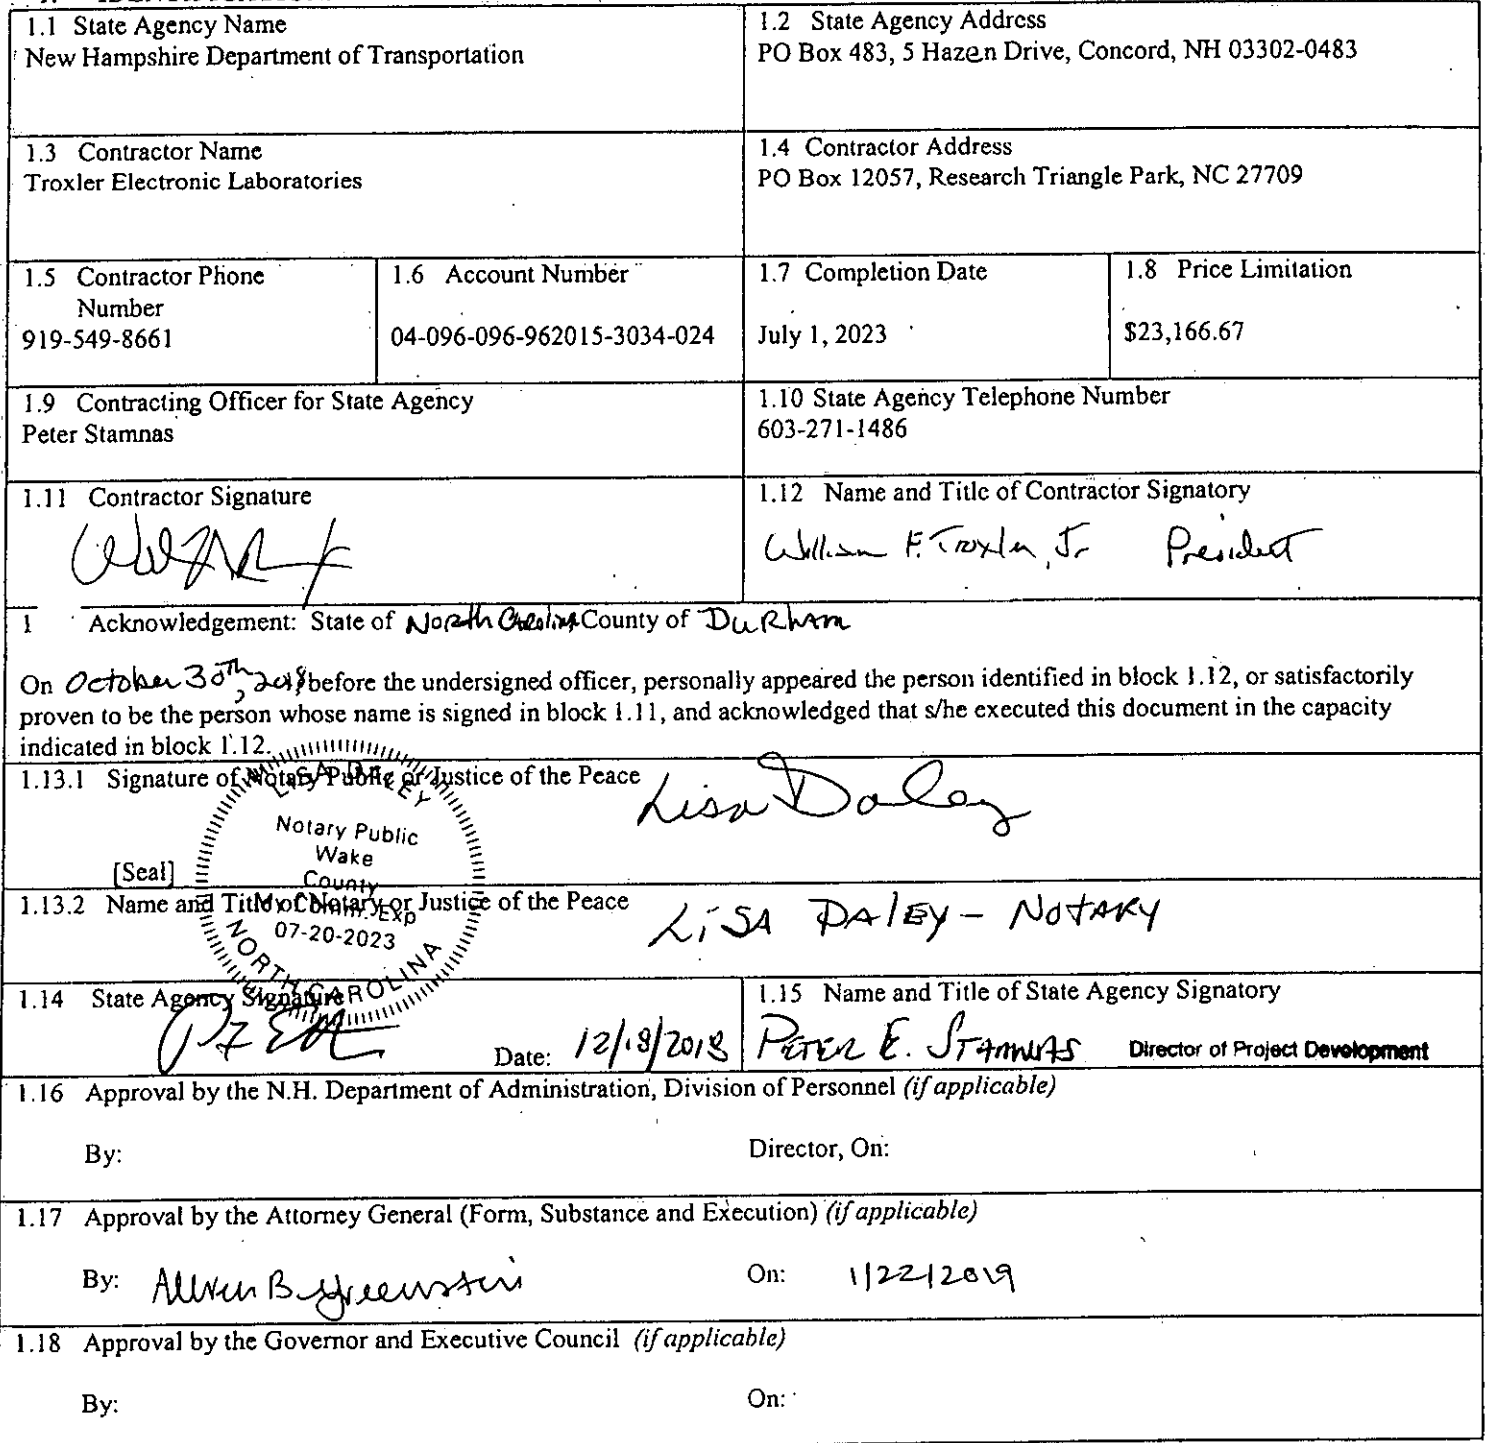 1.1 State Agency Name
New Hampshire Department of Transportation
1.2 State Agency Address
PO Box 483, 5 Hazen Drive, Concord, NH 03302-0483
1.3 Contractor Name
Troxler Electronic Laboratories
1.4 Contractor Address
PO Box 12057, Research Triangle Park, NC 27709
1.5 Contractor Phone
Number
919-549-8661
1.6 Account Number
04-096-096-962015-3034-024
1.7 Completion Date
July 1, 2023
1.8 Price Limitation
$23,166.67
1.9 Contracting Officer for State Agency
Peter Stamnas
1.10 State Agency Telephone Number
603-271-1486
1.11 Contractor Signature
1.12 Name and Title of Contractor Signatory
William F. Troxler, Jr President
1 Acknowledgement: State of North Carolina County of Durham
On October 30th, 2018 before the undersigned officer, personally appeared the person identified in block 1.12, or satisfactorily
proven to be the person whose name is signed in block 1.11, and acknowledged that s/he executed this document in the capacity
indicated in block 1.12.
1.13.1 Signature of Notary Public or Justice of the Peace
Lisa Daley
LISA DALEY
Notary Public
Wake
County
My Comm. Exp
07-20-2023
NORTH CAROLINA
[Seal]
1.13.2 Name and Title of Notary or Justice of the Peace
LiSA DAlEy - NOTARY
1.14 State Agency Signature
Date: 12/18/2018
1.15 Name and Title of State Agency Signatory
PETER E. STAMNAS Director of Project Development
1.16 Approval by the N.H. Department of Administration, Division of Personnel (if applicable)
By:
Director, On:
1.17 Approval by the Attorney General (Form, Substance and Execution) (if applicable)
By: Allison B Greenstein
On: 1/22/2019
1.18 Approval by the Governor and Executive Council (if applicable)
By:
On: